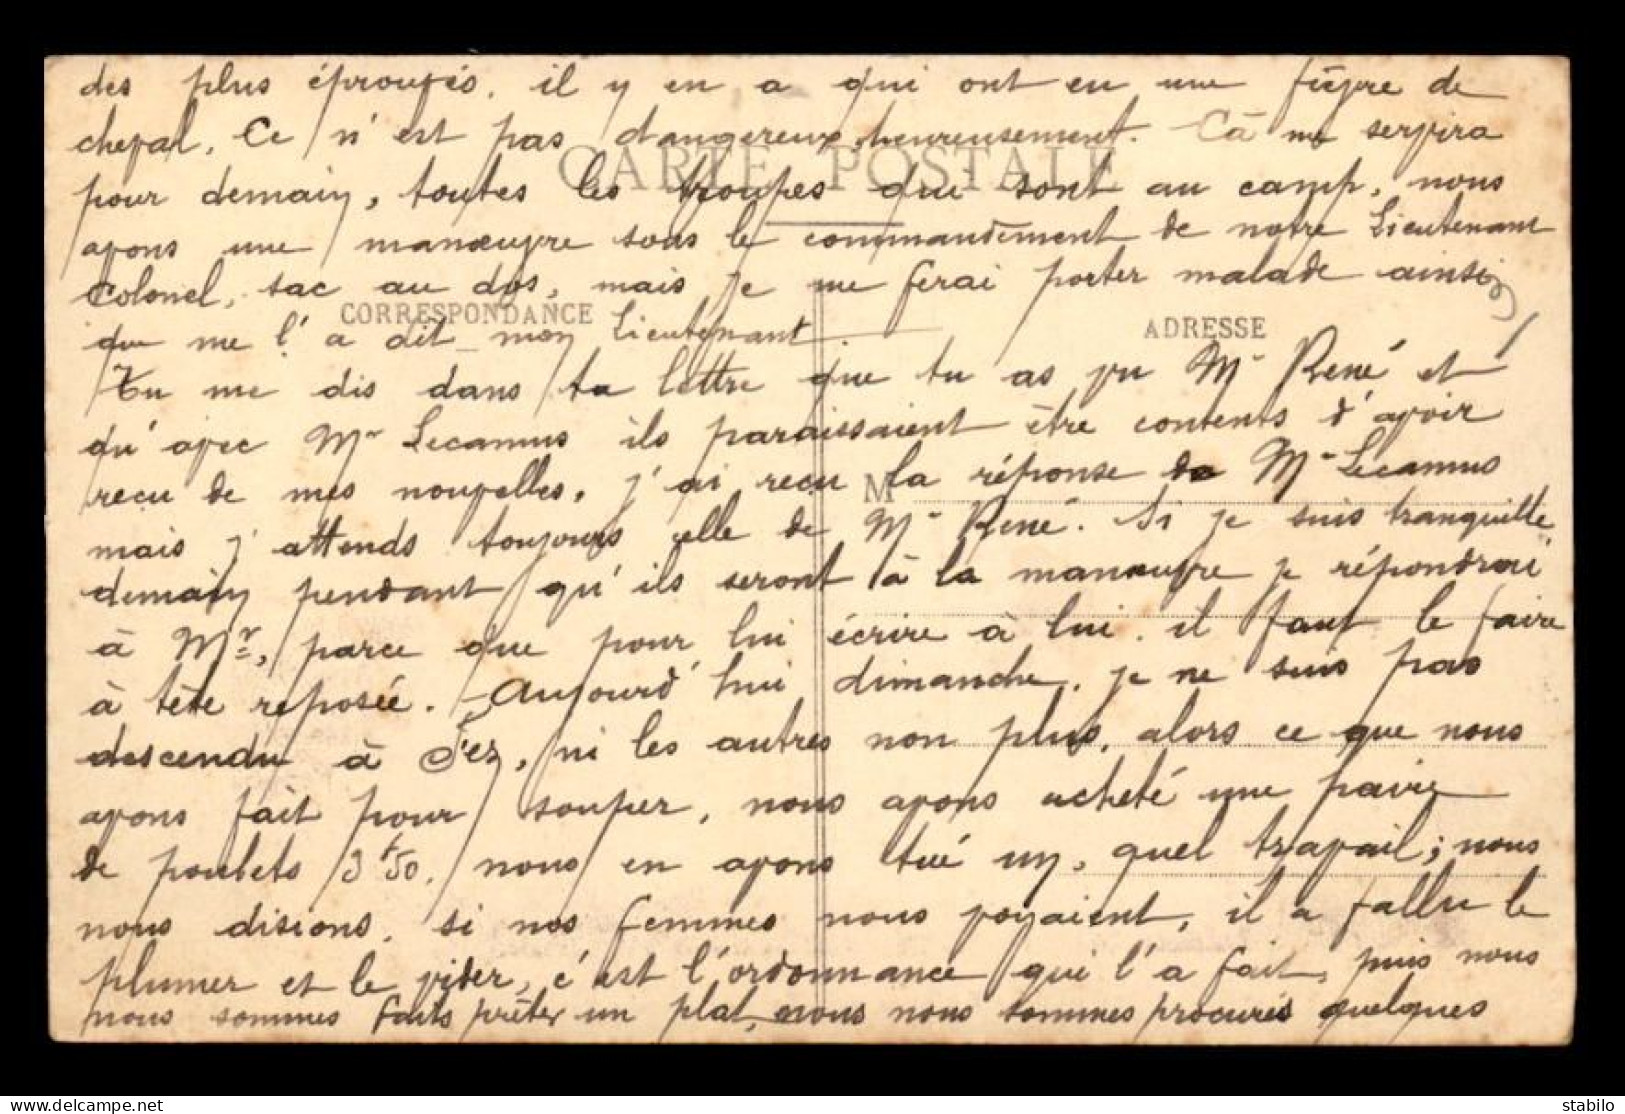 des plus éprouvés, il y en a qui ont eu une fièvre de
cheval. Ce n'est pas dangereux heureusement. Cà me servira
CARTE POSTALE
pour demain, toutes les troupes qui sont au camp, nous
avons une manœuvre sous le commandement de notre Lieutenant
Colonel, sac au dos, mais je me ferai porter malade ainsi
CORRESPONDANCE
ADRESSE
que me l'a dit mon Lieutenant
Tu me dis dans ta lettre que tu as vu Mr René et
qu'avec Mr Lecamus ils paraissaient être contents d'avoir
reçu de mes nouvelles, j'ai reçu la réponse de Mr Lecamus
M
mais j'attends toujours celle de Mr René. Si je suis tranquille
demain pendant qu'ils seront à la manœuvre je répondrai
à Mr, parce que pour lui écrire à lui, il faut le faire
à tête reposée. Aujourd'hui dimanche, je ne suis pas
descendu à Fez, ni les autres non plus, alors ce que nous
avons fait pour souper, nous avons acheté une paire
de poulets 3f50, nous en avons tué un, quel travail; nous
nous disions, si nos femmes nous voyaient, il a fallu le
plumer et le vider, c'est l'ordonnance qui l'a fait, puis nous
nous sommes faits prêter un plat, nous nous sommes procurés quelques